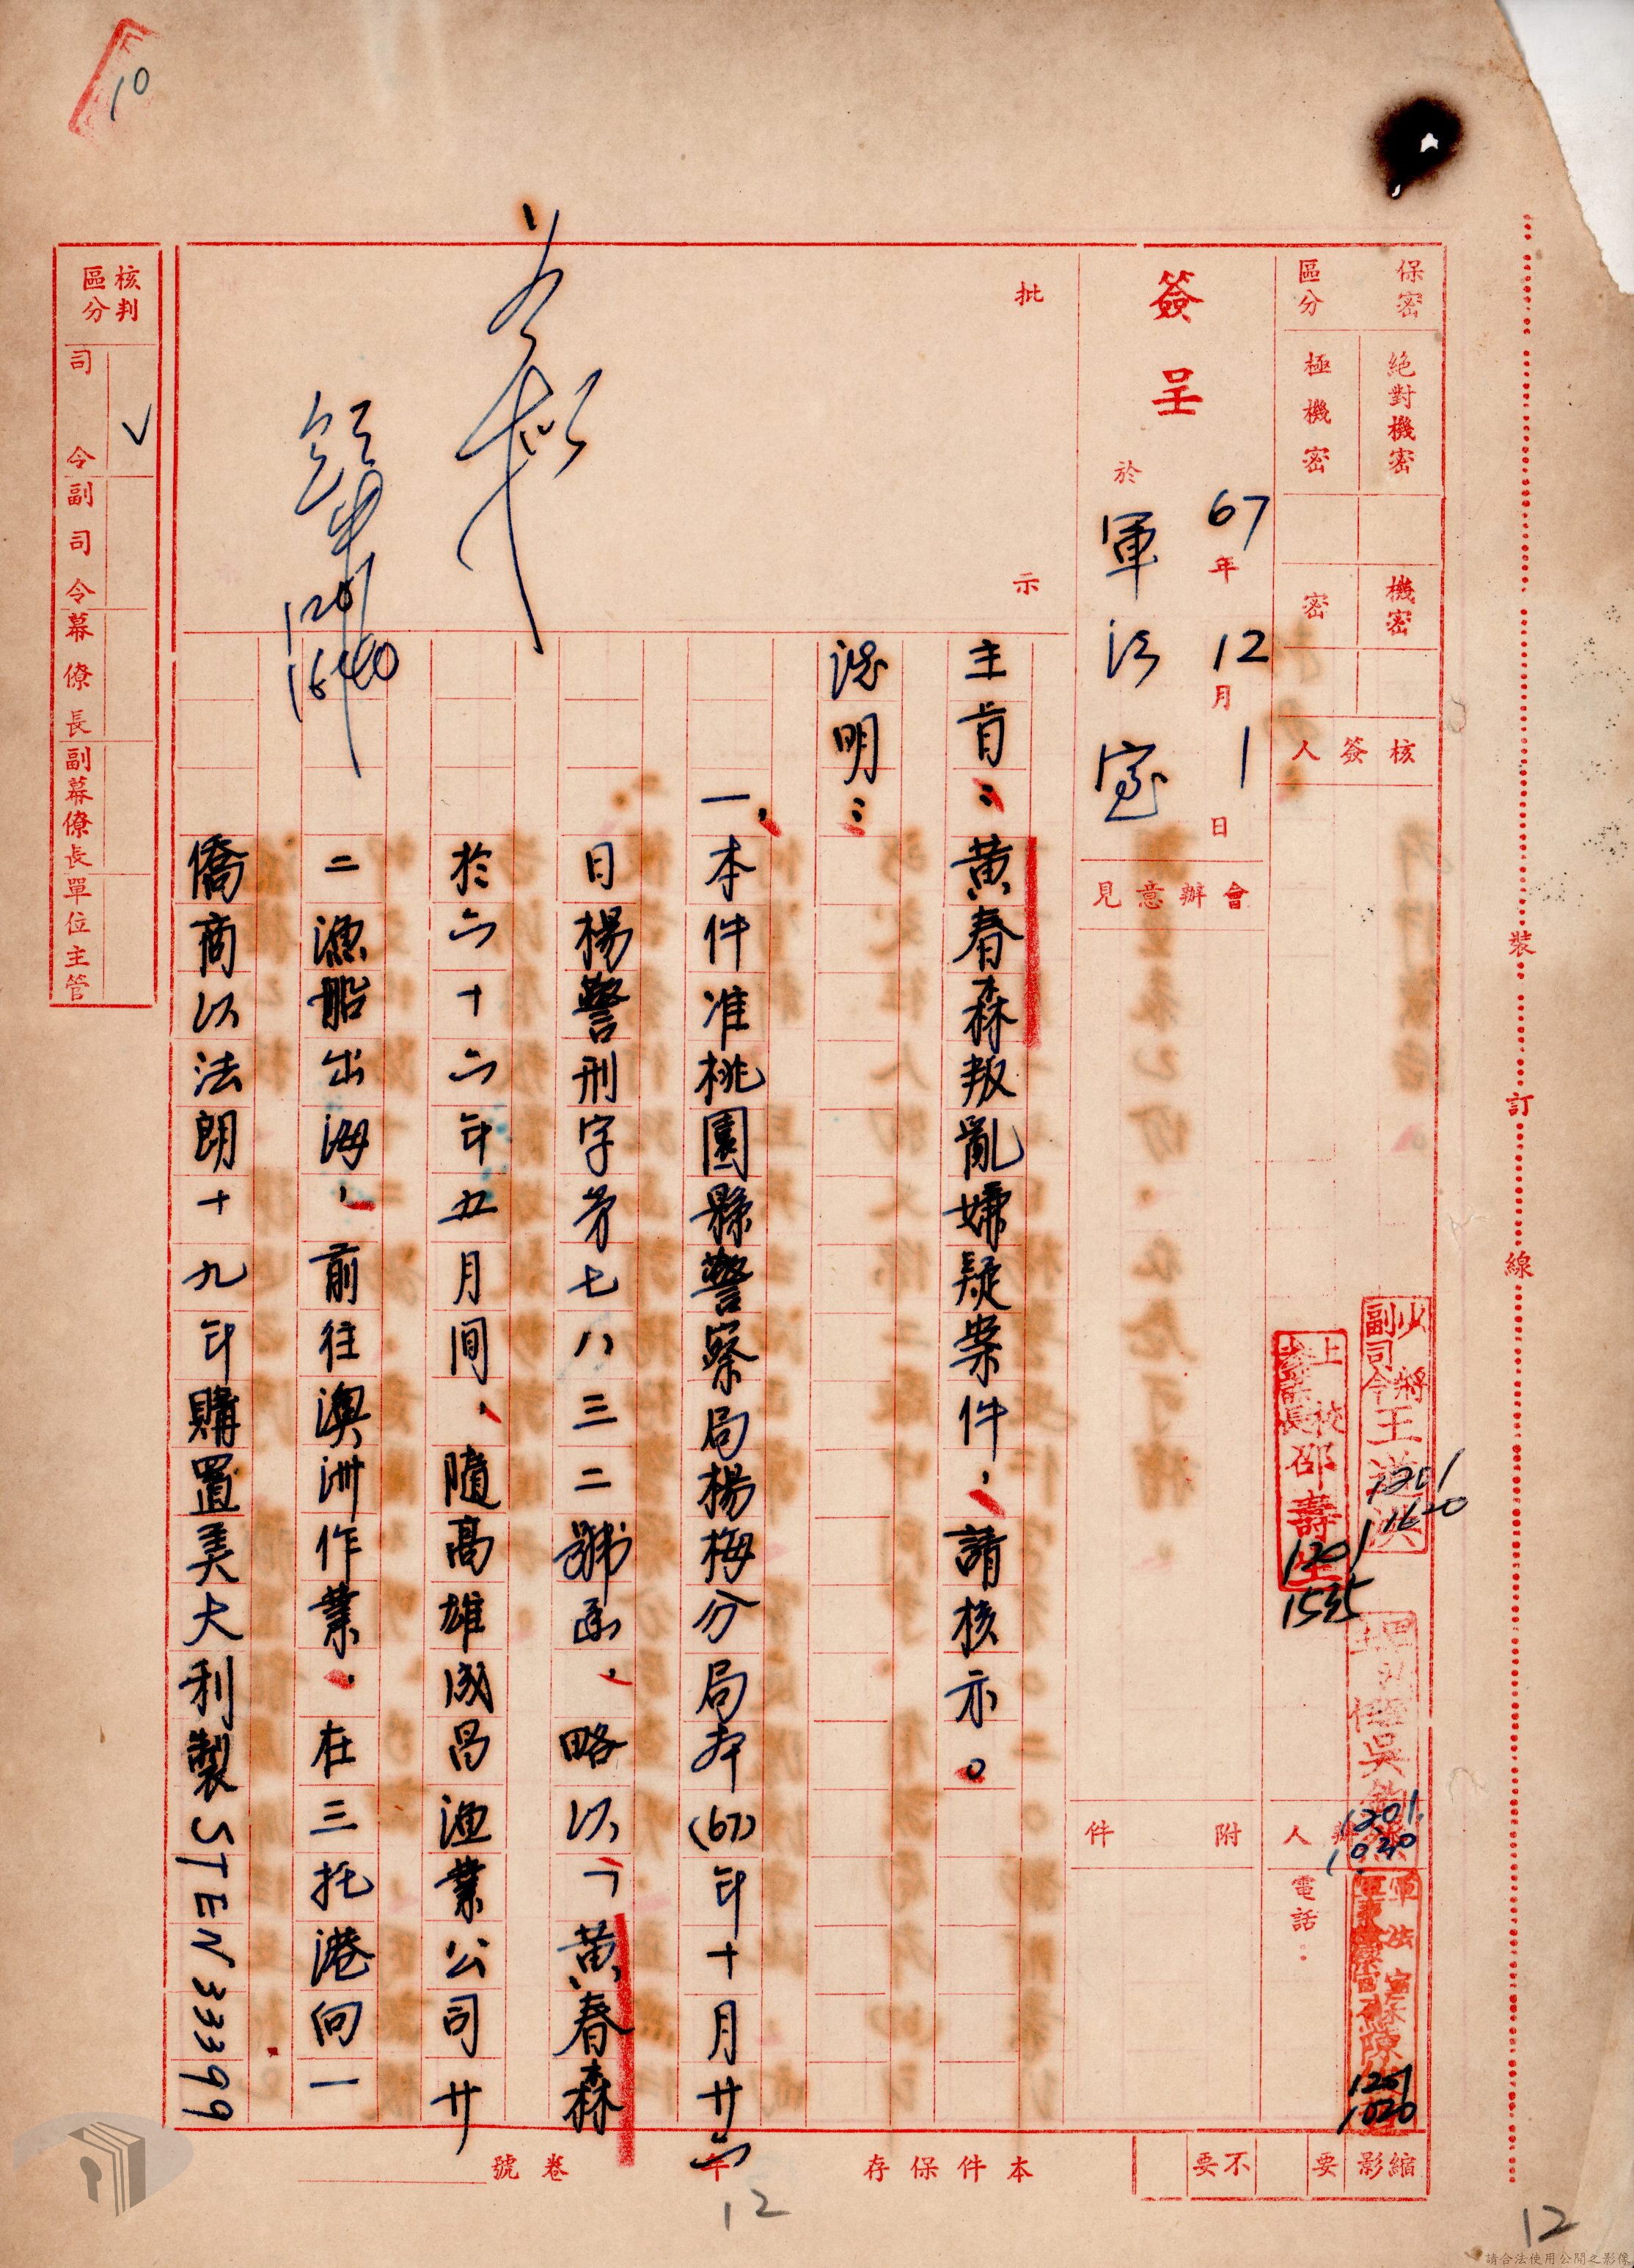 保密區分
絕對機密
極機密
機密
密
核簽人
簽呈
67年12月1日
於軍法室
會辦意見
附件
辦人
電話：
批示
如擬
主旨：黃春森叛亂嫌疑案件，請核示。
說明：
一、本件准桃園縣警察局楊梅分局本(67)年十月廿六
日楊警刑字第七八三二號函、略以「黃春森
於六十六年五月間、隨高雄成昌漁業公司廿
二漁船出海，前往澳洲作業，在三托港向一
僑商以法朗十九年購置美大利製STEN33399
少將副司令王道洪
1201
1620
上校參謀長邵壽生
1201
1535
1201
1020
1201
1640
裝訂線
核判區分
司令
✓
副司令
幕僚長
副幕僚長
單位主管
縮影
要
不要
本件保存
年
卷號
10
12
12
請合法使用公開之影像